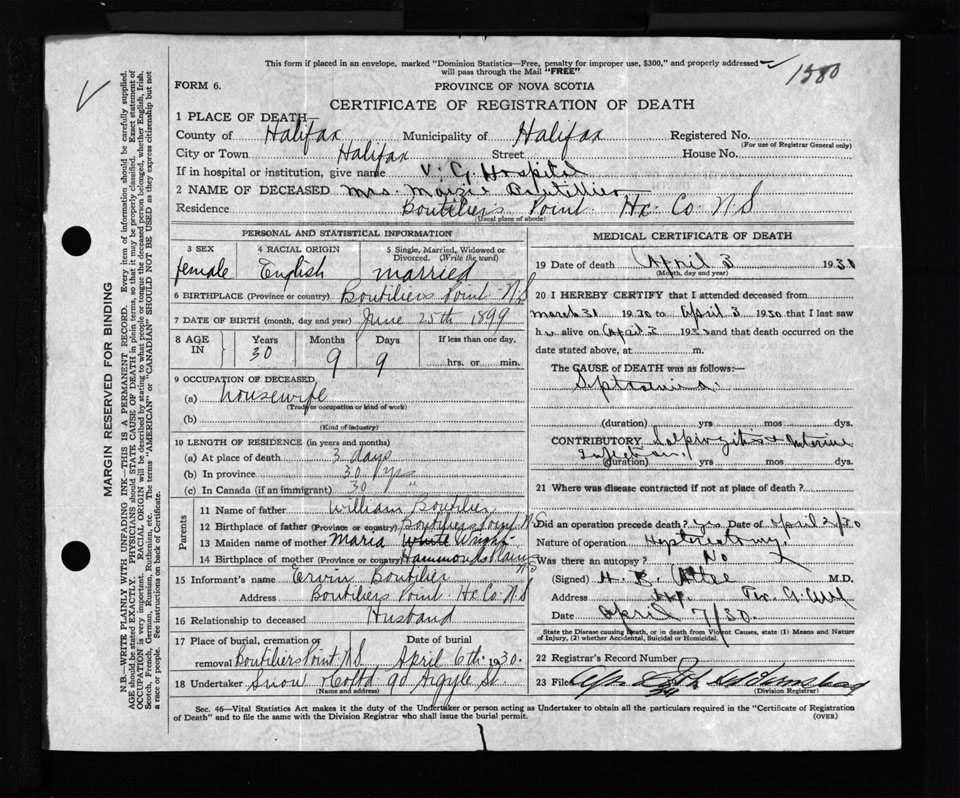 This form if placed in an envelope, marked "Dominion Statistics—Free, penalty for improper use, $300," and properly addressed
will pass through the Mail "FREE"
1580
FORM 6.
PROVINCE OF NOVA SCOTIA
CERTIFICATE OF REGISTRATION OF DEATH
1 PLACE OF DEATH
County of Halifax Municipality of Halifax Registered No.
(For use of Registrar General only)
City or Town Halifax Street House No.
If in hospital or institution, give name V. G. Hospital
2 NAME OF DECEASED Mrs. Maizie Boutillier
Residence Boutiliers Point Hx. Co. N S
(Usual place of abode)
PERSONAL AND STATISTICAL INFORMATION
3 SEX 4 RACIAL ORIGIN 5 Single, Married, Widowed or Divorced. (Write the word)
female English married
6 BIRTHPLACE (Province or country) Boutiliers Point N.S
7 DATE OF BIRTH (month, day and year) June 25th 1899
8 AGE IN Years Months Days If less than one day,
30 9 9 hrs. or min.
9 OCCUPATION OF DECEASED
(a) housewife
(Trade or occupation or kind of work)
(b)
(Kind of industry)
10 LENGTH OF RESIDENCE (in years and months)
(a) At place of death 3 days
(b) In province 30 yrs
(c) In Canada (if an immigrant) 30 "
Parents
11 Name of father William Boutilier
12 Birthplace of father (Province or country) Boutiliers Point N.S
13 Maiden name of mother Maria White Wright
14 Birthplace of mother (Province or country) Hammonds Plains NS
15 Informant's name Ervin Boutilier
Address Boutiliers Point Hx. Co. N S
16 Relationship to deceased Husband
17 Place of burial, cremation or removal Date of burial
Boutiliers Point N.S. April 6th 1930.
18 Undertaker Snow & Co Ltd 90 Argyle St.
(Name and address)
MEDICAL CERTIFICATE OF DEATH
19 Date of death April 3 1930
(Month, day and year)
20 I HEREBY CERTIFY that I attended deceased from
March 31 1930 to April 3 1930 that I last saw
h alive on April 3 193 and that death occurred on
date stated above, at m.
The CAUSE OF DEATH was as follows:—
Septicemia
(duration) yrs mos dys.
CONTRIBUTORY Salpingitis & Uterine
Infection
(duration) yrs mos dys.
21 Where was disease contracted if not at place of death?
Did an operation precede death? Yes Date of April 2/30
Nature of operation Hysterectomy
Was there an autopsy? No
(Signed) H. B. Atlee M.D.
Address Hx.
Date April 7/30.
State the Disease causing Death, or in death from Violent Causes, state (1) Means and Nature
of Injury, (2) whether Accidental, Suicidal or Homicidal.
22 Registrar's Record Number
23 Filed
(Division Registrar)
Sec. 46—Vital Statistics Act makes it the duty of the Undertaker or person acting as Undertaker to obtain all the particulars required in the "Certificate of Registration
of Death" and to file the same with the Division Registrar who shall issue the burial permit.
(OVER)
MARGIN RESERVED FOR BINDING
N.B.—WRITE PLAINLY WITH UNFADING INK—THIS IS A PERMANENT RECORD. Every item of information should be carefully supplied.
AGE should be stated EXACTLY. PHYSICIANS should STATE CAUSE OF DEATH in plain terms, so that it may be properly classified. Exact statement of
OCCUPATION is very important. RACIAL ORIGIN will be described by stating to what people or tongue the deceased person belonged, whether English, Irish,
Scotch, French, German, Russian, Ruthenian, etc. The terms "AMERICAN" or "CANADIAN" SHOULD NOT BE USED as they express citizenship but not
a race or people. See instructions on back of Certificate.